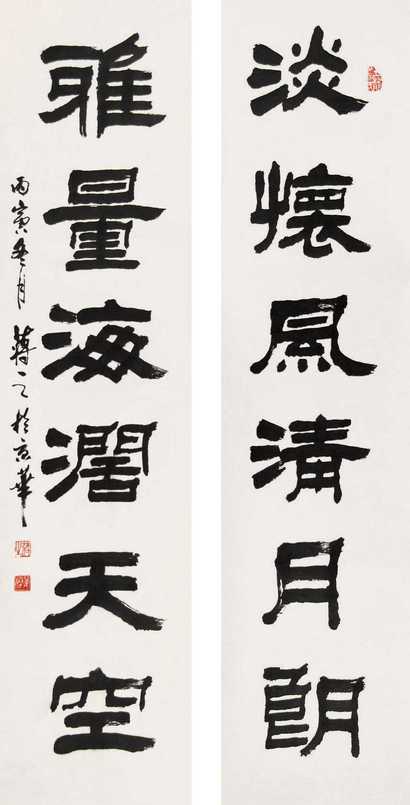 淡懷風清月朗
雅量海濶天空
丙寅冬月蔣一之於京華